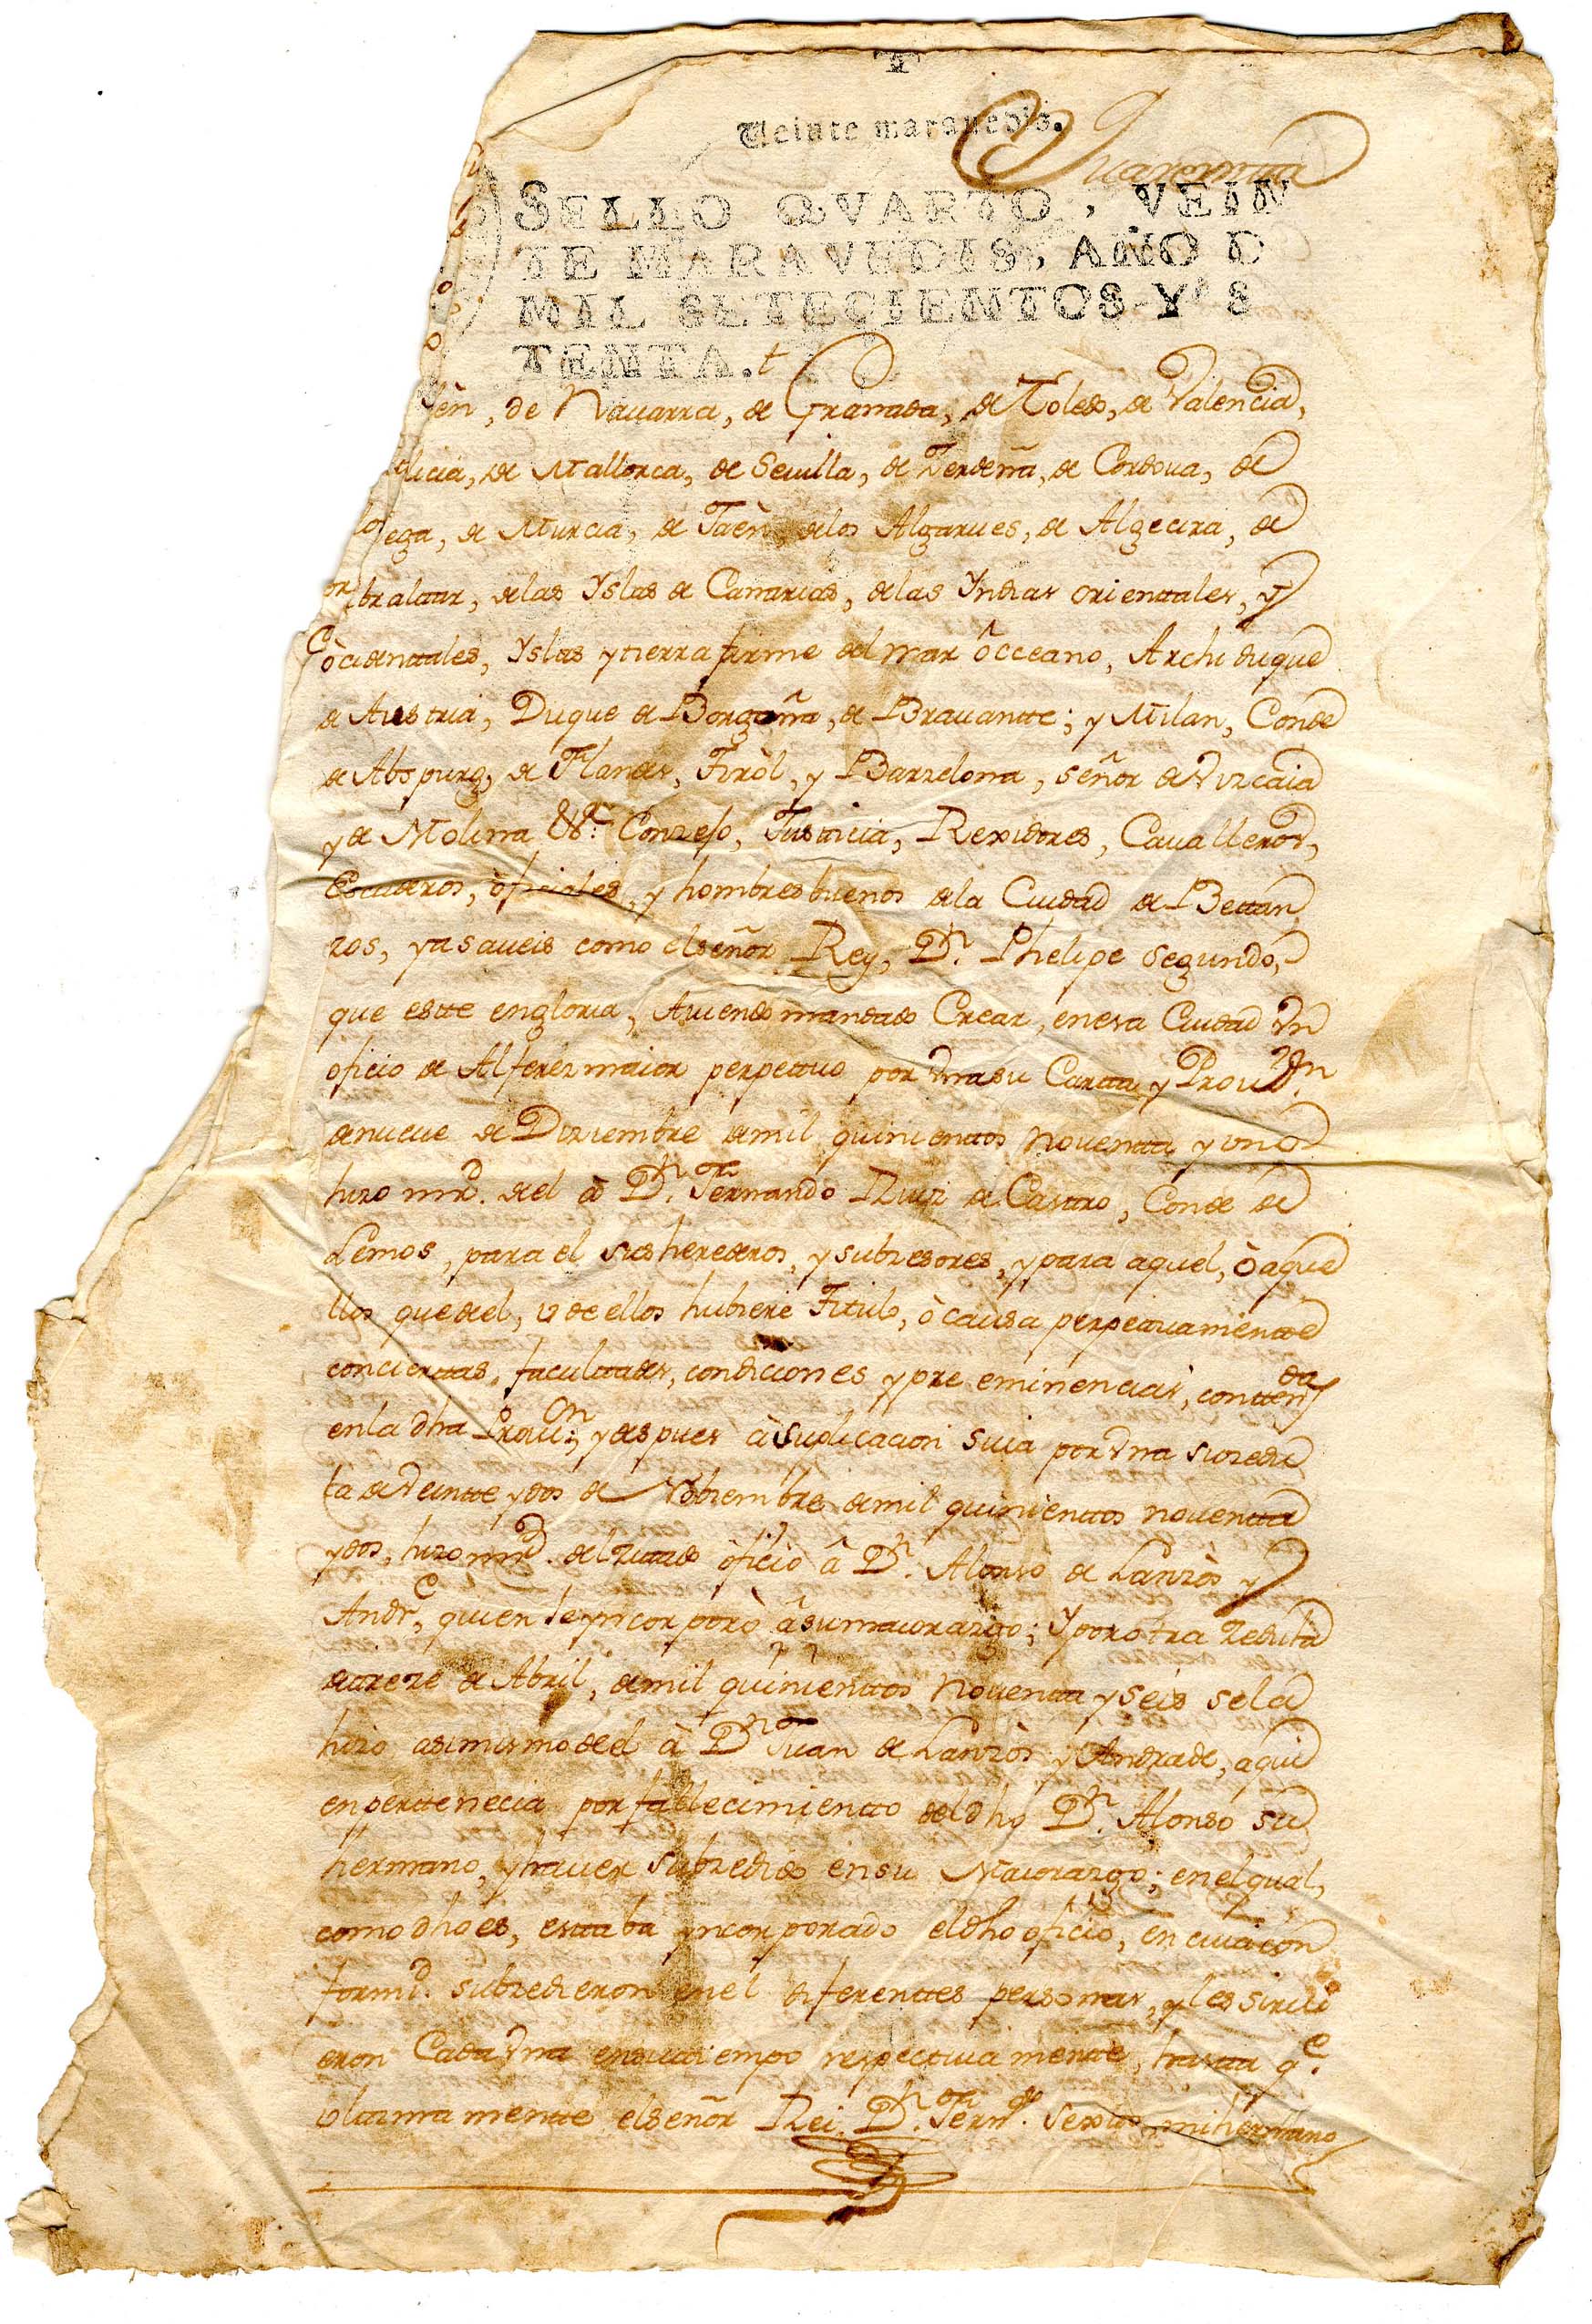 Veinte maravedis.
Quarentta
SELLO QVARTO, VEIN
TE MARAVEDIS, AÑO D
MIL SETECIENTOS Y S
TENTA.
lèn, de Nauarra, de Granada, de Toledo, de Valencia,
alicia, de Mallorca, de Seuilla, de Zerdeña, de Cordoua, de
ega, de Murcia, de Jaèn, delos Algarues, de Algecira, de
ibralttar, delas Yslas de Canarias, delas Yndias orienttales, y
òcidenttales, Yslas y tierra firme del mar ôcceano, Archiduque
de Austria, Duque de Borgoña, de Brauantte; y Milan, Conde
de Abspurg, de Flandes, Tiròl, y Barzelona, señor de Vizcaia
y de Molina &ª. Conzejo, Justticia, Rexidores, Caualleros,
Escuderos, òficiales, y hombres buenos dela Ciudad de Bettan
zos, ya saueis como el señor Rey, Dn. Phelipe segundo,
que estte en gloria, Auiendo mandado Crear, en esa Ciudad Vn
oficio de Alferez maior perpettuo por Vna su Cartta y Prouon.
de nueue de Diziembre de mil quinienttos nouentta y vno
hizo mrd. del à Dn. Fernando Ruiz de Casttro, Conde de
Lemos, para el sus herederos, y subzesores, y para aquel, ò aque
llos que de el, v de ellos hubiere Titulo, ò causa perpettuamentte
con cierttas, facultades, condiciones y pre eminencias, contten
das
en la dha Prouon; y despues à suplicacion suia por Vna su zedu
la de Veintte y dos de Nobiembre de mil quinienttos nouentta
y dos, hizo mrd. del zittado òficio â Dn. Alonso de Lanzòs y
Andre, quien le yncorporò â su maiorazgo; y por otra zedula
de treze de Abril, de mil quinienttos nouentta y seis se la
hizo asimismo de el à Dn Juan de Lanzòs y Andrade, a qui
en perttenecia por fallecimientto del dho Dn. Alonso su
hermano, y hauer subzedido en su Maiorazgo; en el qual,
como dho es, esttaba yncorporado el dho oficio, en cuia con
formd. subzedieron en el diferenttes personas, y les sirui
eron Cada Vna en su tiempo respecttiuamentte, hastta qe.
vlttimamentte el señor Rei Dn. Ferndo. sextto, mi hermano